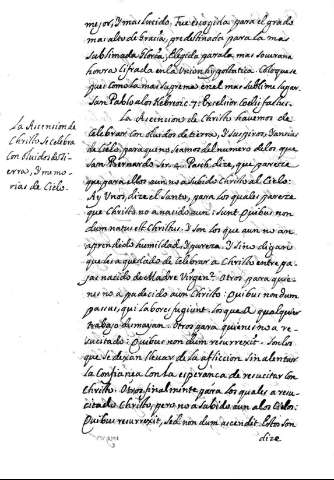 mejor, y mas lucido. Fue escogida para el grado
mas alto de Gracia, predestinada para la mas
sublimada Gloria; Elegida para la mas soverana
honra cifrada en la Union hypostatica. Coloquese
pues como la mas suprema en el mas sublime lugar.
San Pablo a los Hebreos. 7. Excelsior Coelis factus.
La Ascension de Christo havemos de
celebrar con olvidos de tierra, y suspiros, y ansias
de Cielo, para que no seamos del numero de los que
San Bernardo Ser. 4. Pasch. dize, que parece
que para ellos aun no a subido Christo al Cielo.
Ay Unos, dize el Santo, para los quales parece
que Christo no a nacido aun: sunt Quibus non
dum natus est Christus. y son los que aun no an
aprendido humildad, y pureza. y sino digan
que les a quedado de celebrar a Christo entre pa
jas nacido de Madre Virgen? Otros, para quie
nes no a padecido aun Christo: Quibus non dum
passus, qui labores fugiunt. los que a qualquier
trabajo desmayan. Otros para quienes no a re
sucitado: Quibus non dum resurrexit. son los
que se dexan llevar de la afliccion sin alentar
la confianca con la esperanca de resucitar con
Christo. Otros finalmente para los quales a resu
citado Christo, pero no a subido aun a los Cielos:
Quibus resurrexit, sed non dum ascendit. Estos son
dize
La Ascension de
Christo se celebra
con olvidos de ti
erra, y memo
rias de Cielo.